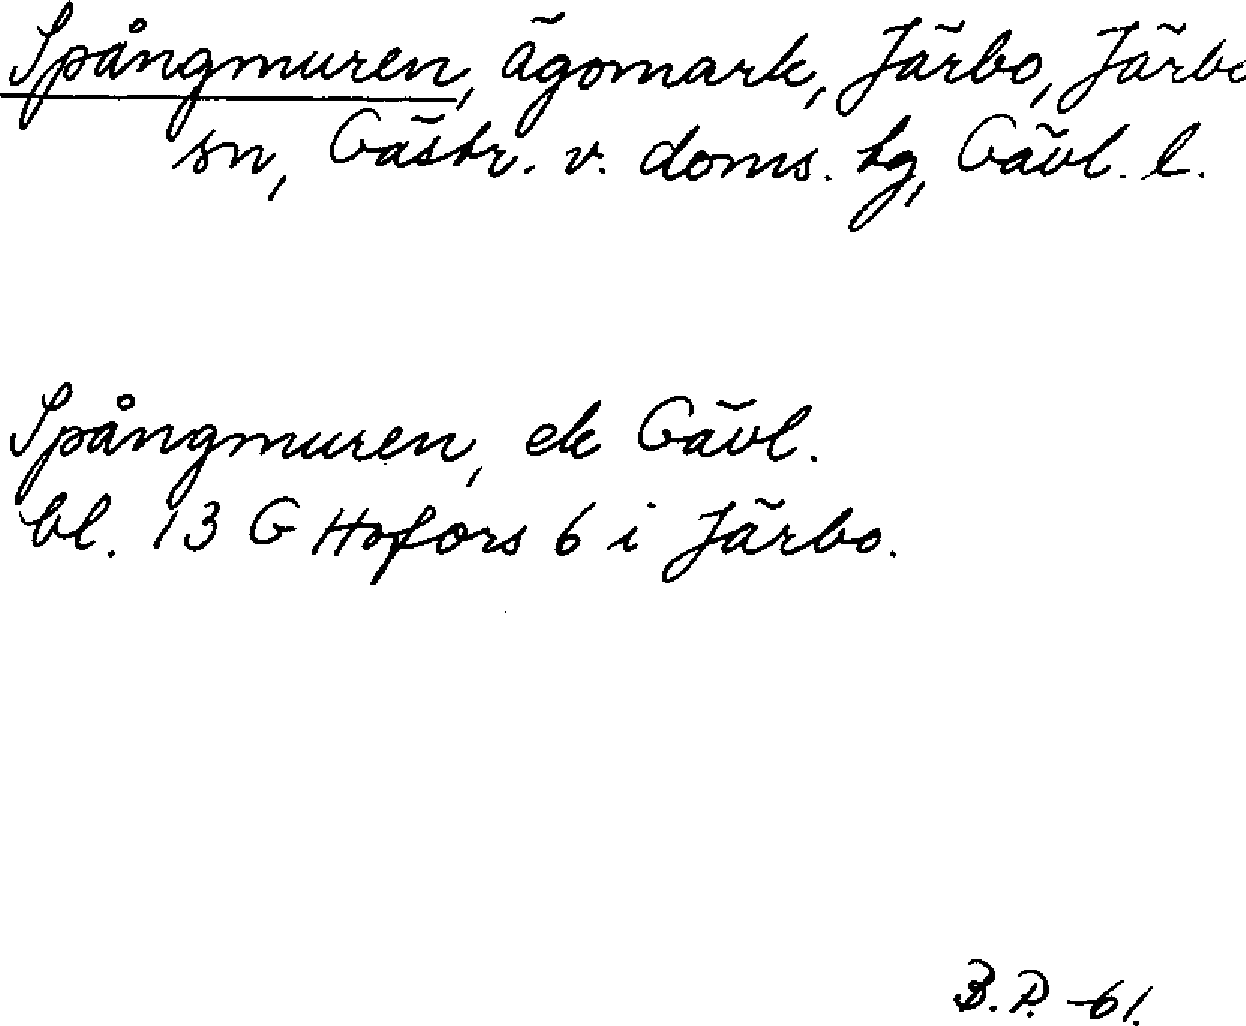 Spångmuren, ägomark, Järbo, Järbo
sn, Gästr. v. doms. hg, Gävl. l.
Spångmuren, ek Gävl.
bl. 13 G Hofors 6 i Järbo.
B.P. -61.